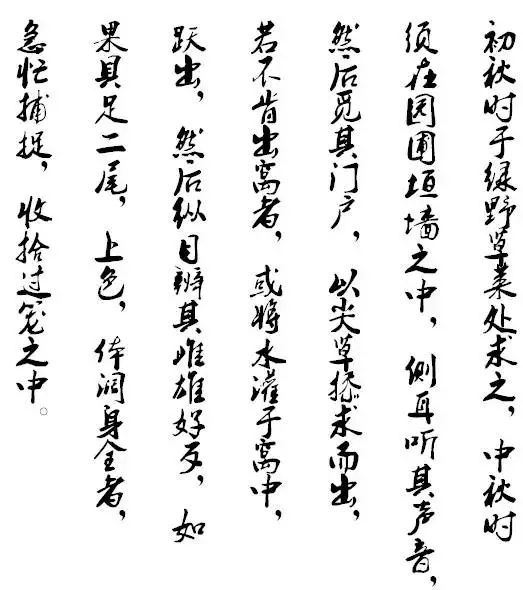 初秋时于绿野草菜处求之，中秋时
须在园圃垣墙之中，侧耳听其声音，
然后觅其门户，以尖草掭求而出，
若不肯出窝者，或将水灌于窝中，
跃出，然后纵目辨其雌雄好歹，如
果具足二尾，上色，体润身全者，
急忙捕捉，收拾过笼之中。